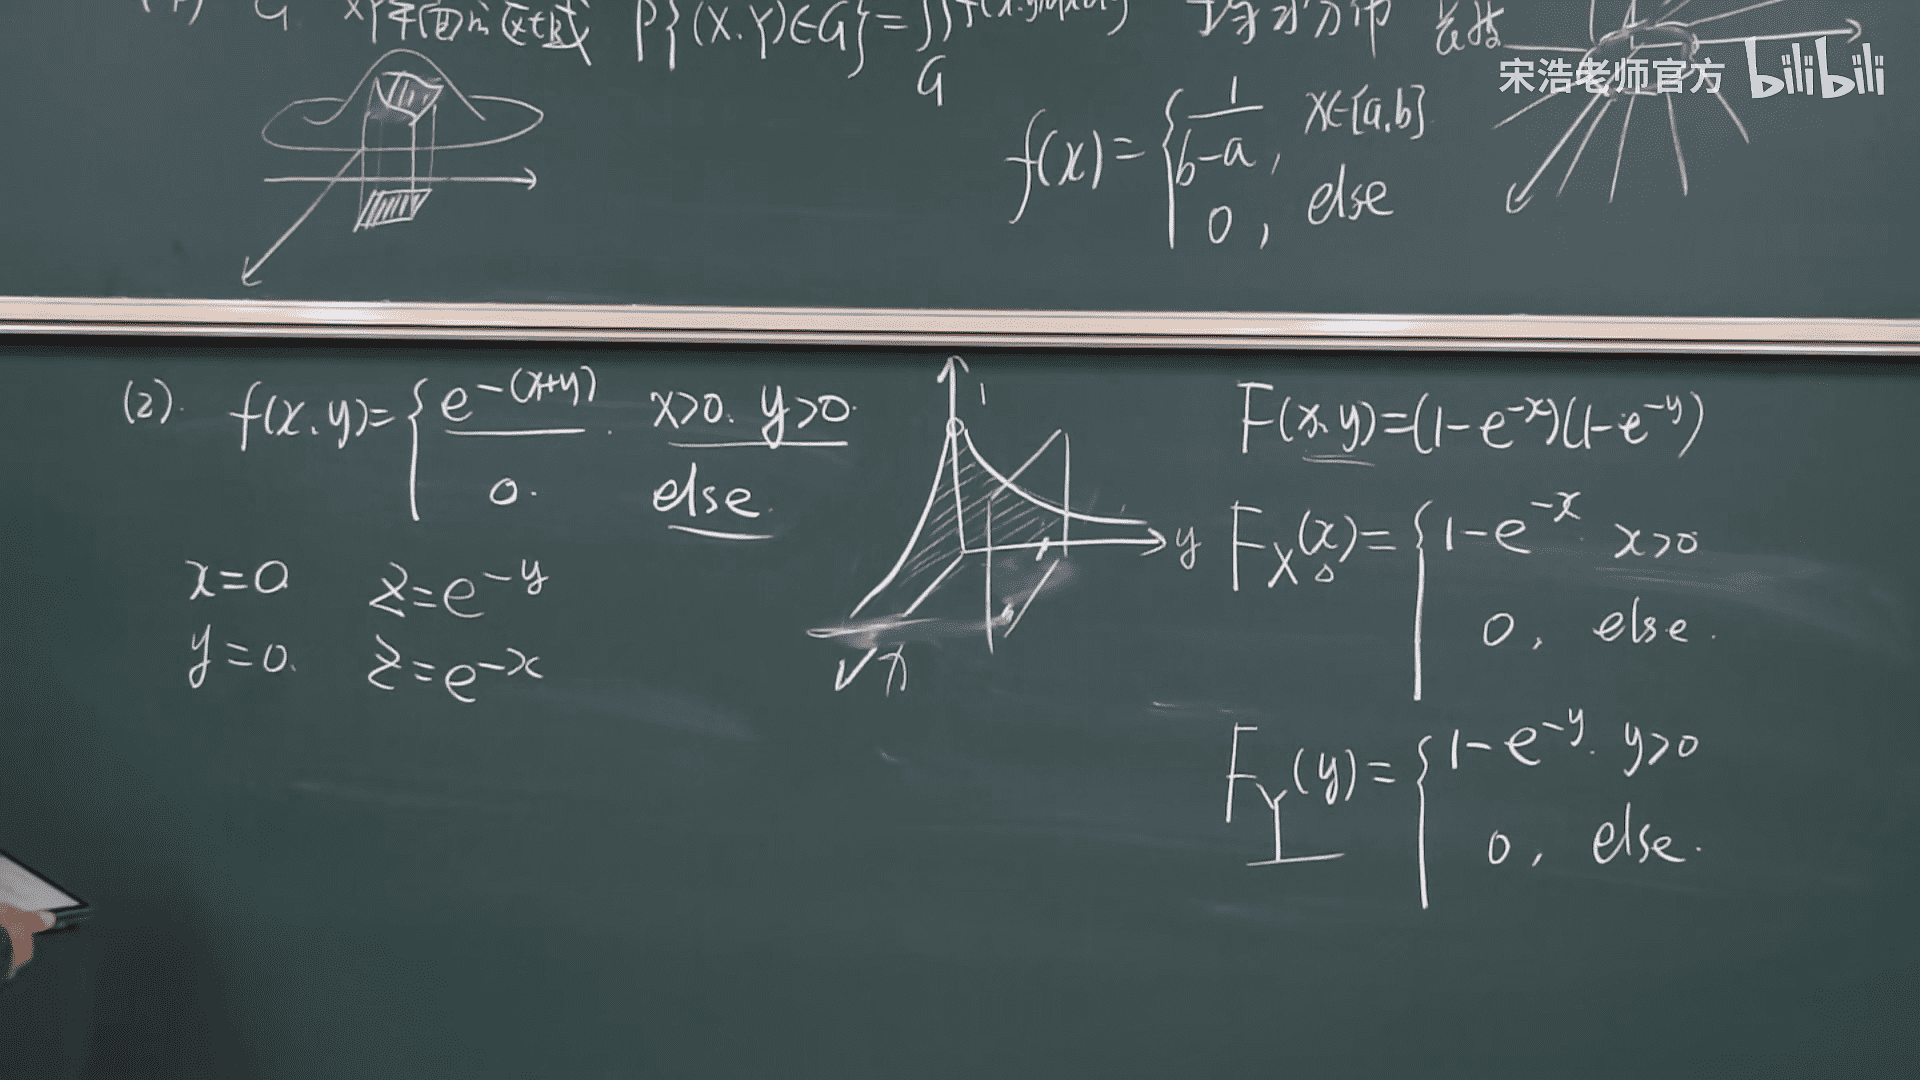 G xy平面的区域 P{(X.Y)∈G}=∬f(x.y)dxdy
G
宋浩老师官方 bilibili
f(x)={1/(b-a), x∈[a.b]
0, else
(2). f(x.y)={e^-(x+y). x>0. y>0.
0. else.
x=0 z=e^-y
y=0. z=e^-x
1
y
x
F(x.y)=(1-e^-x)(1-e^-y)
F_X(x)={1-e^-x. x>0
0, else.
F_Y(y)={1-e^-y. y>0
0, else.